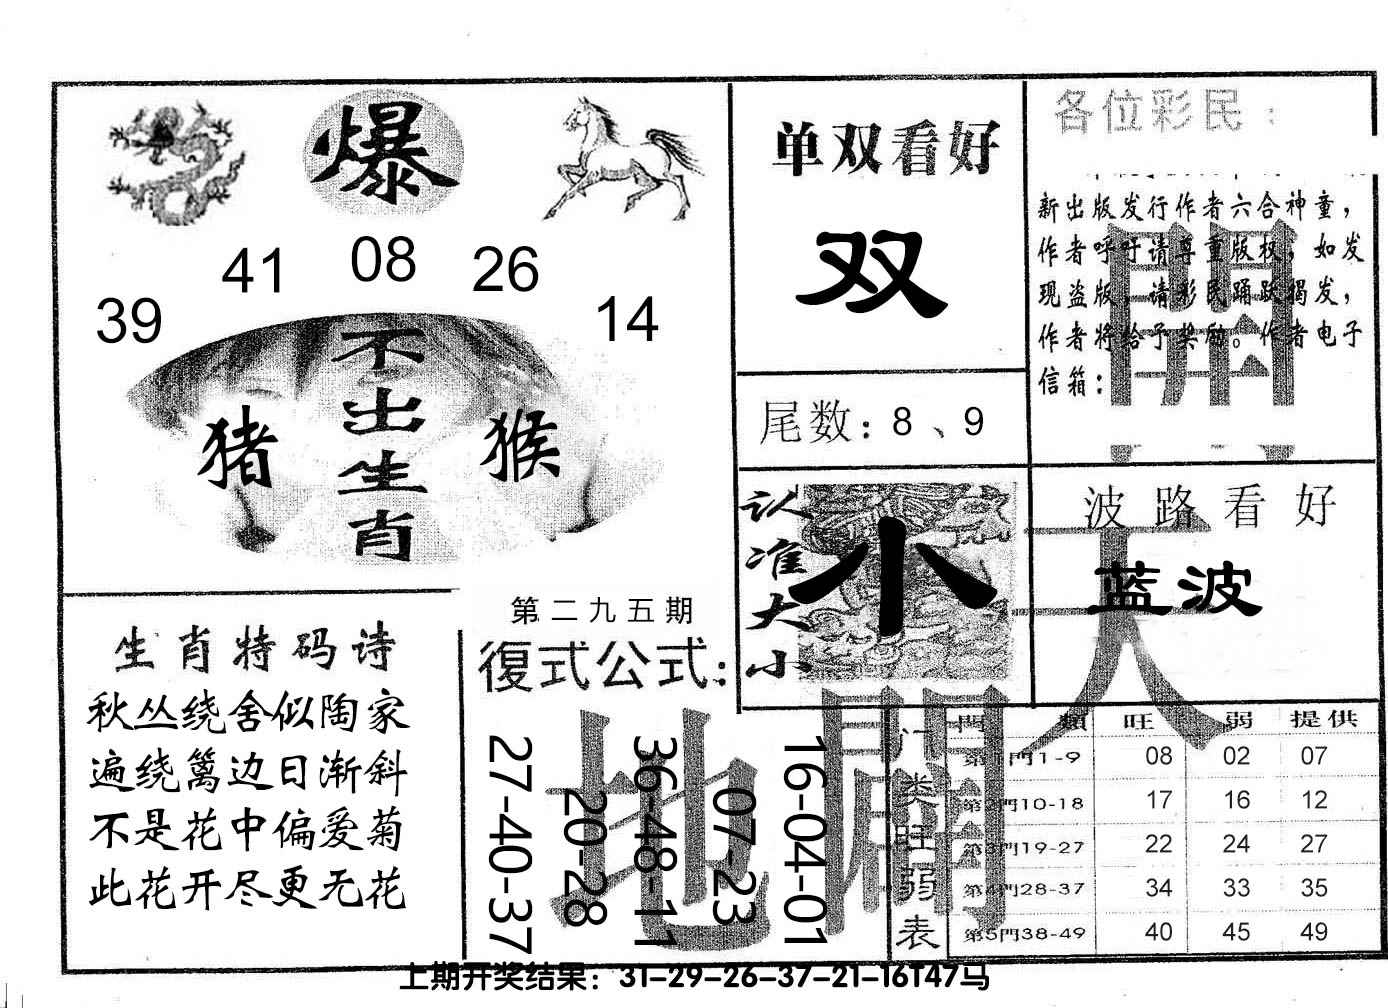 爆
39 41 08 26 14
不出生肖
猪 猴
单双看好
双
尾数：8、9
各位彩民：
新出版发行作者六合神童，
作者呼吁请尊重版权，如发
现盗版，请彩民踊跃揭发，
作者将给予奖励。作者电子
信箱：
認准大小
小
波路看好
蓝波
生肖特码诗
秋丛绕舍似陶家
遍绕篱边日渐斜
不是花中偏爱菊
此花开尽更无花
第二九五期
復式公式：
27-40-37
20-28
36-48-11
07-23
16-04-01
天
地
開
门类旺弱表
門類 旺 弱 提供
第1門1-9 08 02 07
第2門10-18 17 16 12
第3門19-27 22 24 27
第4門28-37 34 33 35
第5門38-49 40 45 49
上期开奖结果：31-29-26-37-21-16T47马